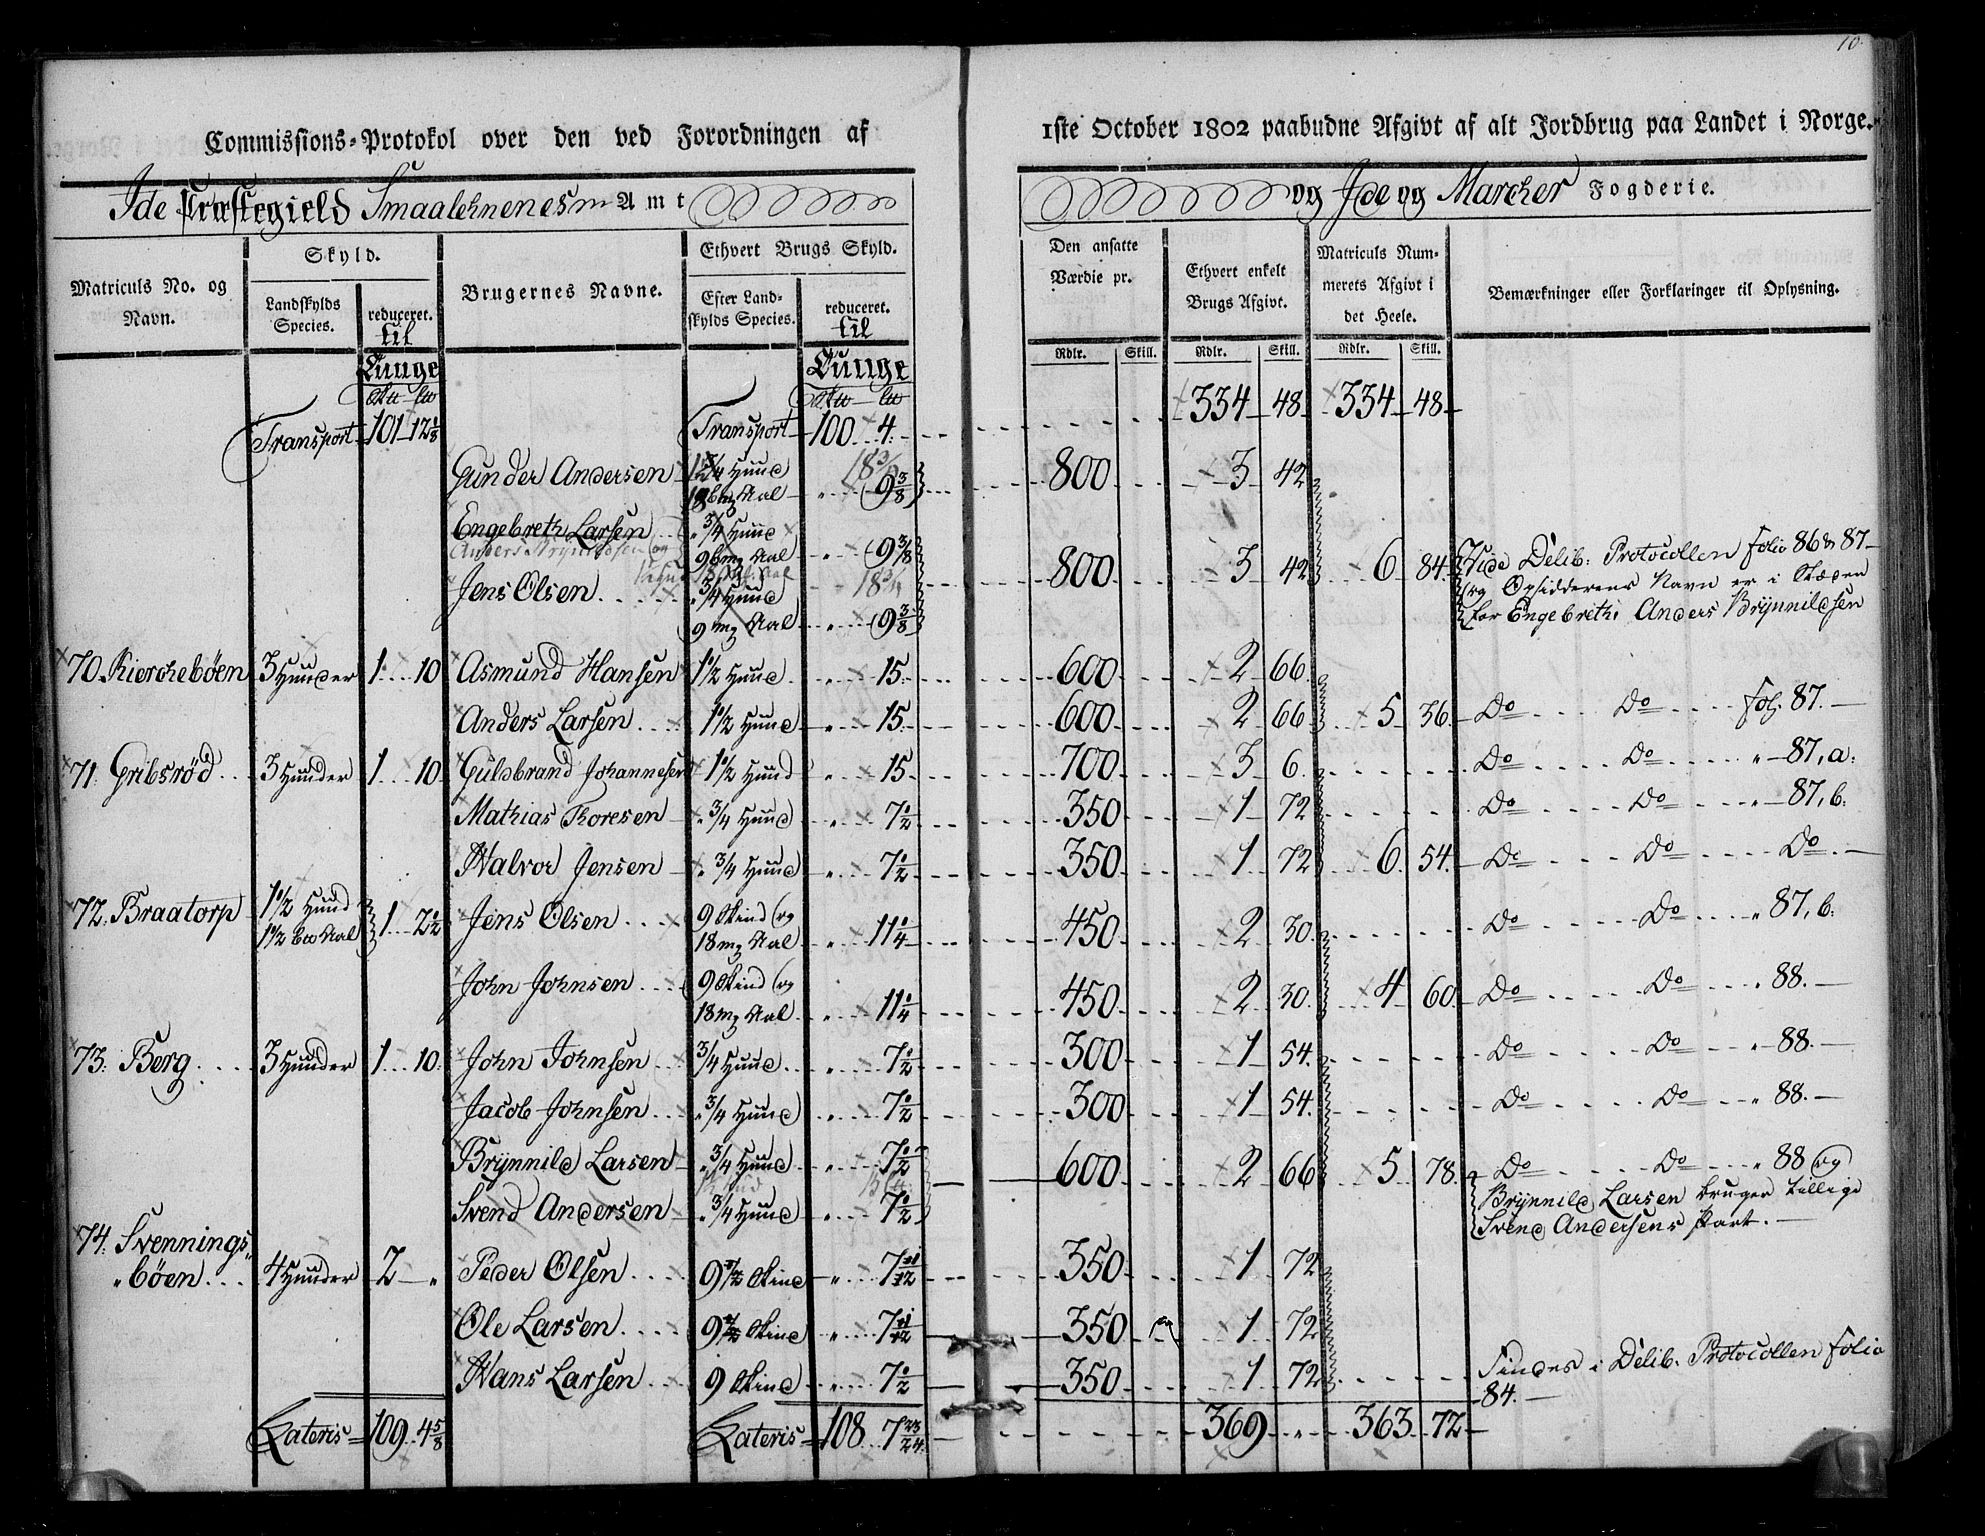 10.
Commissions-Protokol over den ved Forordningen af 1ste October 1802 paabudne Afgivt af alt Jordbrug paa Landet i Norge.
Ide Præstegield Smaalehnenes Amt og Ide og Marcher Fogderie.
Matriculs No. og Navn.
Skyld.
Landskylds Species.
reduceret. til Tunge
Brugernes Navne.
Ethvert Brugs Skyld.
Efter Landskylds Species.
reduceret. til Tunge
Den ansatte Værdie pr.
Ethvert enkelt Brugs Afgivt.
Matriculs Nummerets Afgivt i det Heele.
Bemærkninger eller Forklaringer til Oplysning.
Rdlr. Skill. Rdlr. Skill. Rdlr. Skill.
Transport 101 12 1/8 Transport 100 4 334 48 334 48
Gunder Andersen 9 3/8 800 3 42
Engebreth Larsen 3/4 Hund
9 bmg Aal 9 3/8
Jens Olsen 3/4 Hund 800 3 42 6 84 Vide Delib: Protocollen folio 86 & 87
og Opsidderens Navn er i Stæden
for Engebreth: Anders Brynnildsen
9 mg Aal 9 3/8
70. Kierckebøen 3 Hunder 1 10 Asmund Hansen 1 1/2 Hund 15 600 2 66
Anders Larsen 1 1/2 Hund 15 600 2 66 5 36 Do Do fol. 87.
71. Gribsrød 3 Hunder 1 10 Guldbrand Johannesen 1 1/2 Hund 15 700 3 6 Do Do 87, a:
Mathias Thoresen 3/4 Hund 7 1/2 350 1 72 Do Do 87, b:
Halvor Jensen 3/4 Hund 7 1/2 350 1 72 6 54 Do Do Do
72. Braatorp 1 1/2 Hund
1 1/2 bw Aal 1 2 1/2 Jens Olsen 9 Skind og
18 mg Aal 11 1/4 450 2 30 Do Do 87, b:
John Johnsen 9 Skind og
18 mg Aal 11 1/4 450 2 30 4 60 Do Do 88.
73. Berg 3 Hunder 1 10 John Johnsen 3/4 Hund 7 1/2 300 1 54 Do Do 88.
Jacob Johnsen 3/4 Hund 7 1/2 300 1 54 Do Do 88.
Brynnild Larsen 3/4 Hund 7 1/2 600 2 66 5 78 Do Do 88 og
Brynnild Larsen bruger tillige
Svend Andersens Part.
Svend Andersen 3/4 Hund 7 1/2
74. Svennings-
bøen 4 Hunder 2 Peder Olsen Skind 7 11/12 350 1 72
Ole Larsen Skind 7 11/12 350 1 72
Hans Larsen 9 Skind 7 1/2 350 1 72 Findes i Delib. Protocollen folio
84.
Lateris 109 4 5/8 Lateris 108 7 23/24 369 363 72